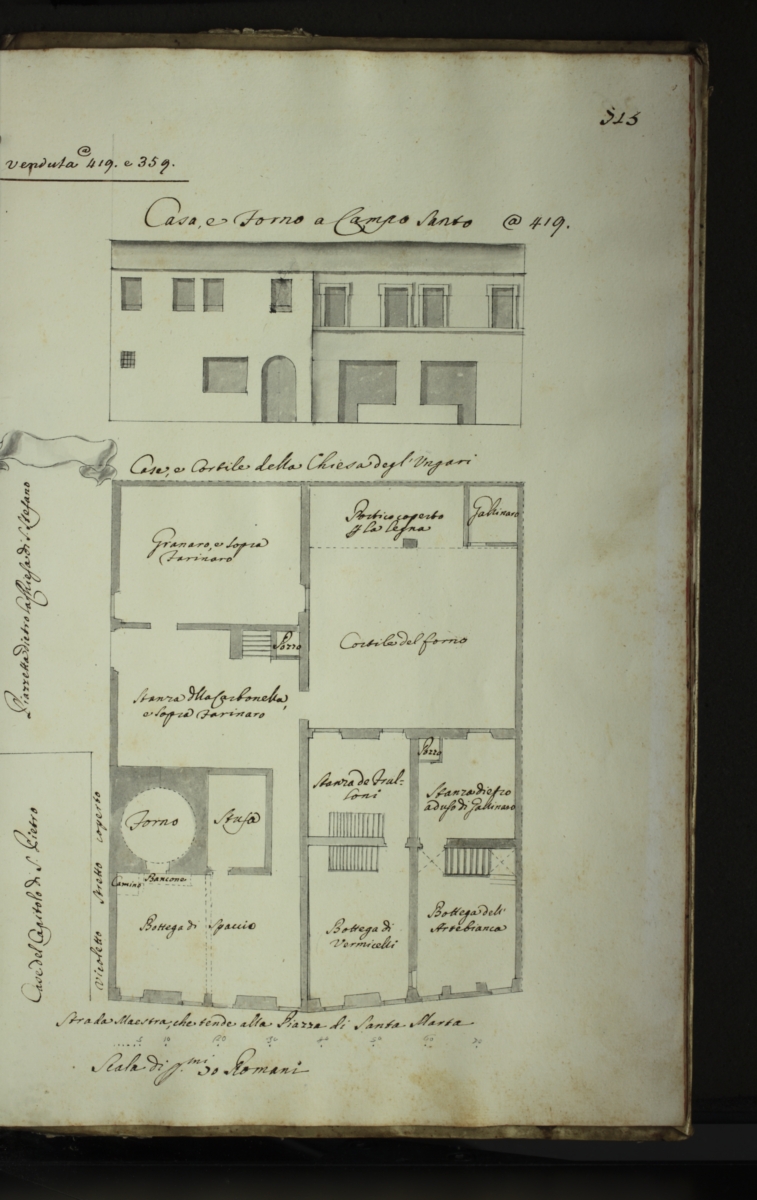 313
venduta @ 419. e 359.
Casa, e Forno a Campo Santo @ 419.
Case, e Cortile della Chiesa degl' Ungari
Granaro, e sopra
Farinaro
Portico coperto
la legna
Gallinaro
Pozzo
Cortile del forno
Stanza della Carbonella,
e sopra Farinaro
Piazzetta dietro la Chiesa di S. Stefano
Stanza de Frul-
loni
Pozzo
Stanza dietro
ad uso di Gallinaro
Forno
Stufa
Camino
Bancone
Bottega di Spaccio
Bottega di
Vermicelli
Bottega dell'
Arte bianca
Case del Capitolo di S. Pietro
Vicoletto stretto coperto
Strada Maestra, che tende alla Piazza di Santa Marta
5 10 20 30 40 50 60 70
Scala di p.mi 70 Romani